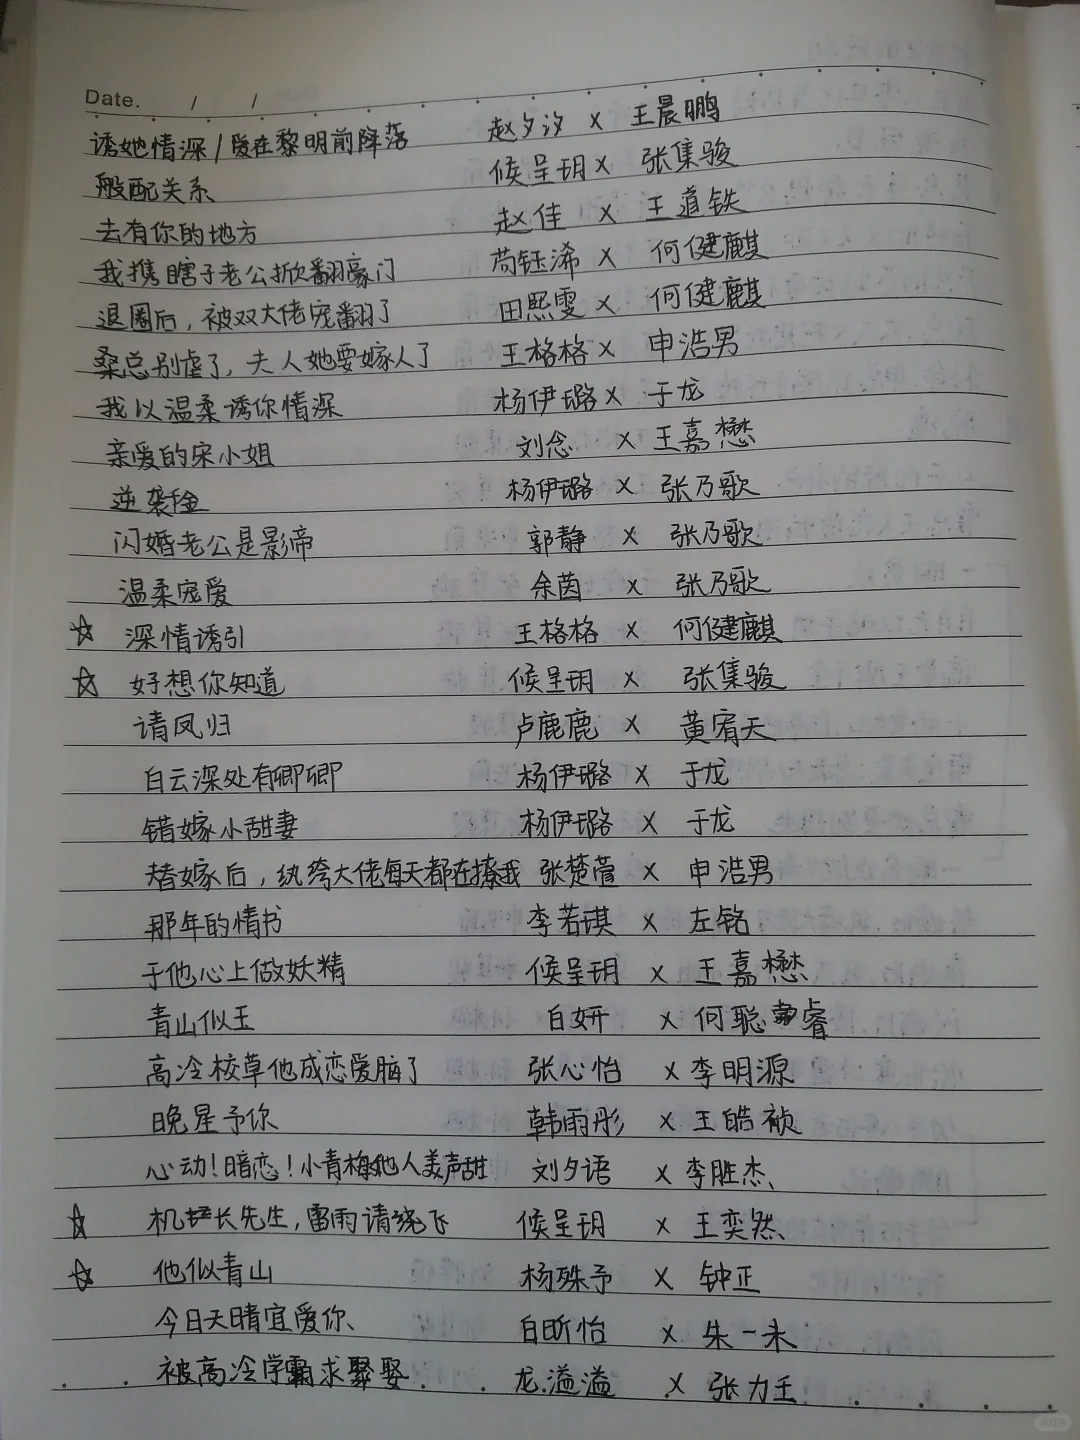 Date. / /
诱她情深/爱在黎明前降落 赵夕汐 x 王晨鹏
般配关系 候呈玥 x 张集骏
去有你的地方 赵佳 x 王道铁
我携瞎子老公掀翻豪门 苘钰浠 x 何健麒
退圈后，被双大佬宠翻了 田熙雯 x 何健麒
桑总别虐了，夫人她要嫁人了 王格格 x 申浩男
我以温柔诱你情深 杨伊璐 x 于龙
亲爱的宋小姐 刘念 x 王嘉懋
逆袭千金 杨伊璐 x 张乃歌
闪婚老公是影帝 郭静 x 张乃歌
温柔宠爱 余茵 x 张乃歌
☆ 深情诱引 王格格 x 何健麒
☆ 好想你知道 候呈玥 x 张集骏
请凤归 卢鹿鹿 x 黄宥天
白云深处有卿卿 杨伊璐 x 于龙
错嫁小甜妻 杨伊璐 x 于龙
替嫁后，纨绔大佬每天都在撩我 张楚萱 x 申浩男
那年的情书 李若琪 x 左铭
于他心上做妖精 候呈玥 x 王嘉懋
青山似玉 白妍 x 何聪睿
高冷校草他成恋爱脑了 张心怡 x 李明源
晚星予你 韩雨彤 x 王皓祯
心动！暗恋！小青梅他人美声甜 刘夕语 x 李胜杰
☆ 机长先生，雷雨请绕飞 候呈玥 x 王奕然
☆ 他似青山 杨殊予 x 钟正
今日天晴宜爱你 白昕怡 x 朱一未
被高冷学霸求娶 龙溢溢 x 张力王
小红书